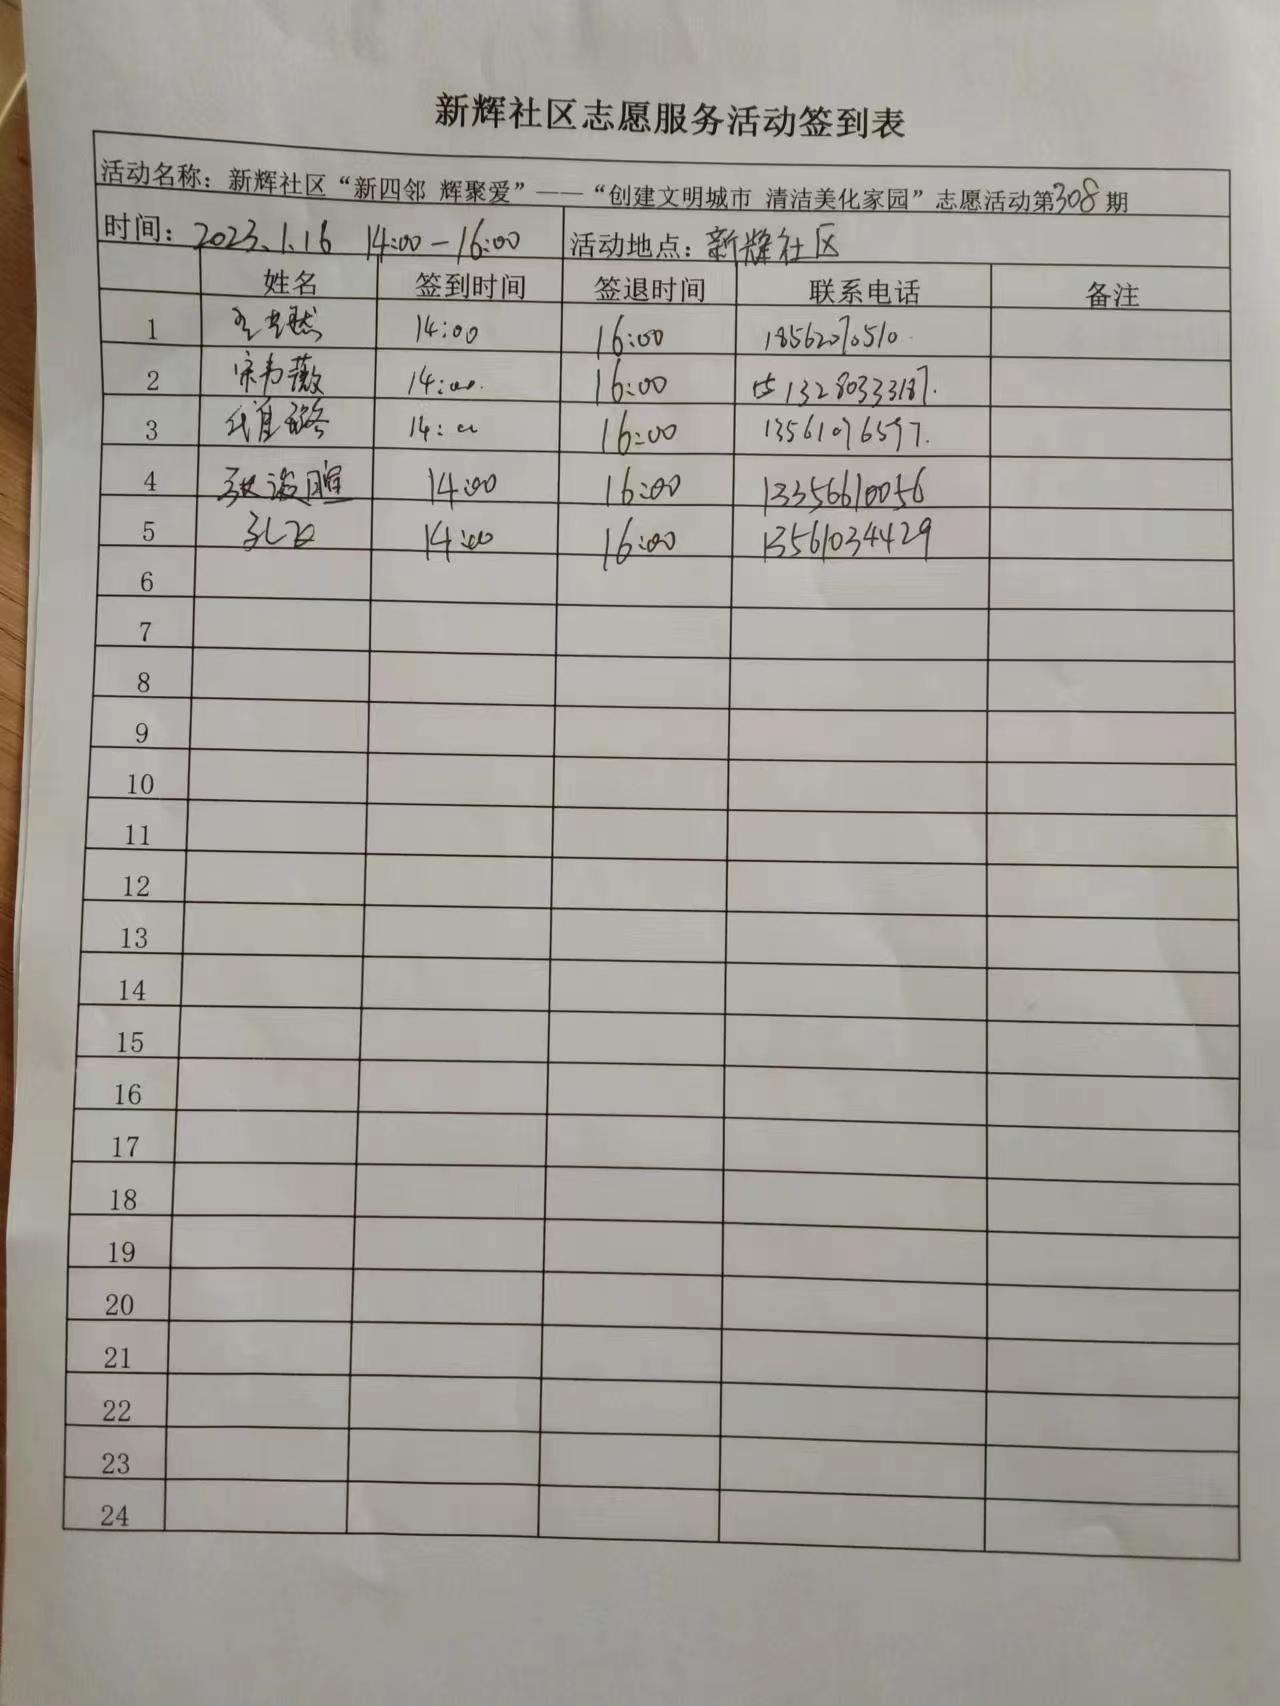 新辉社区志愿服务活动签到表
活动名称：新辉社区“新四邻 辉聚爱”——“创建文明城市 清洁美化家园”志愿活动第308期
时间：2023.1.16 14:00-16:00 活动地点：新辉社区
姓名 签到时间 签退时间 联系电话 备注
1 14:00 16:00 18562070510
2 宋韦薇 14:00 16:00 13280333187
3 14:00 16:00 13561076597
4 14:00 16:00 13356610056
5 14:00 16:00 13561034429
6
7
8
9
10
11
12
13
14
15
16
17
18
19
20
21
22
23
24